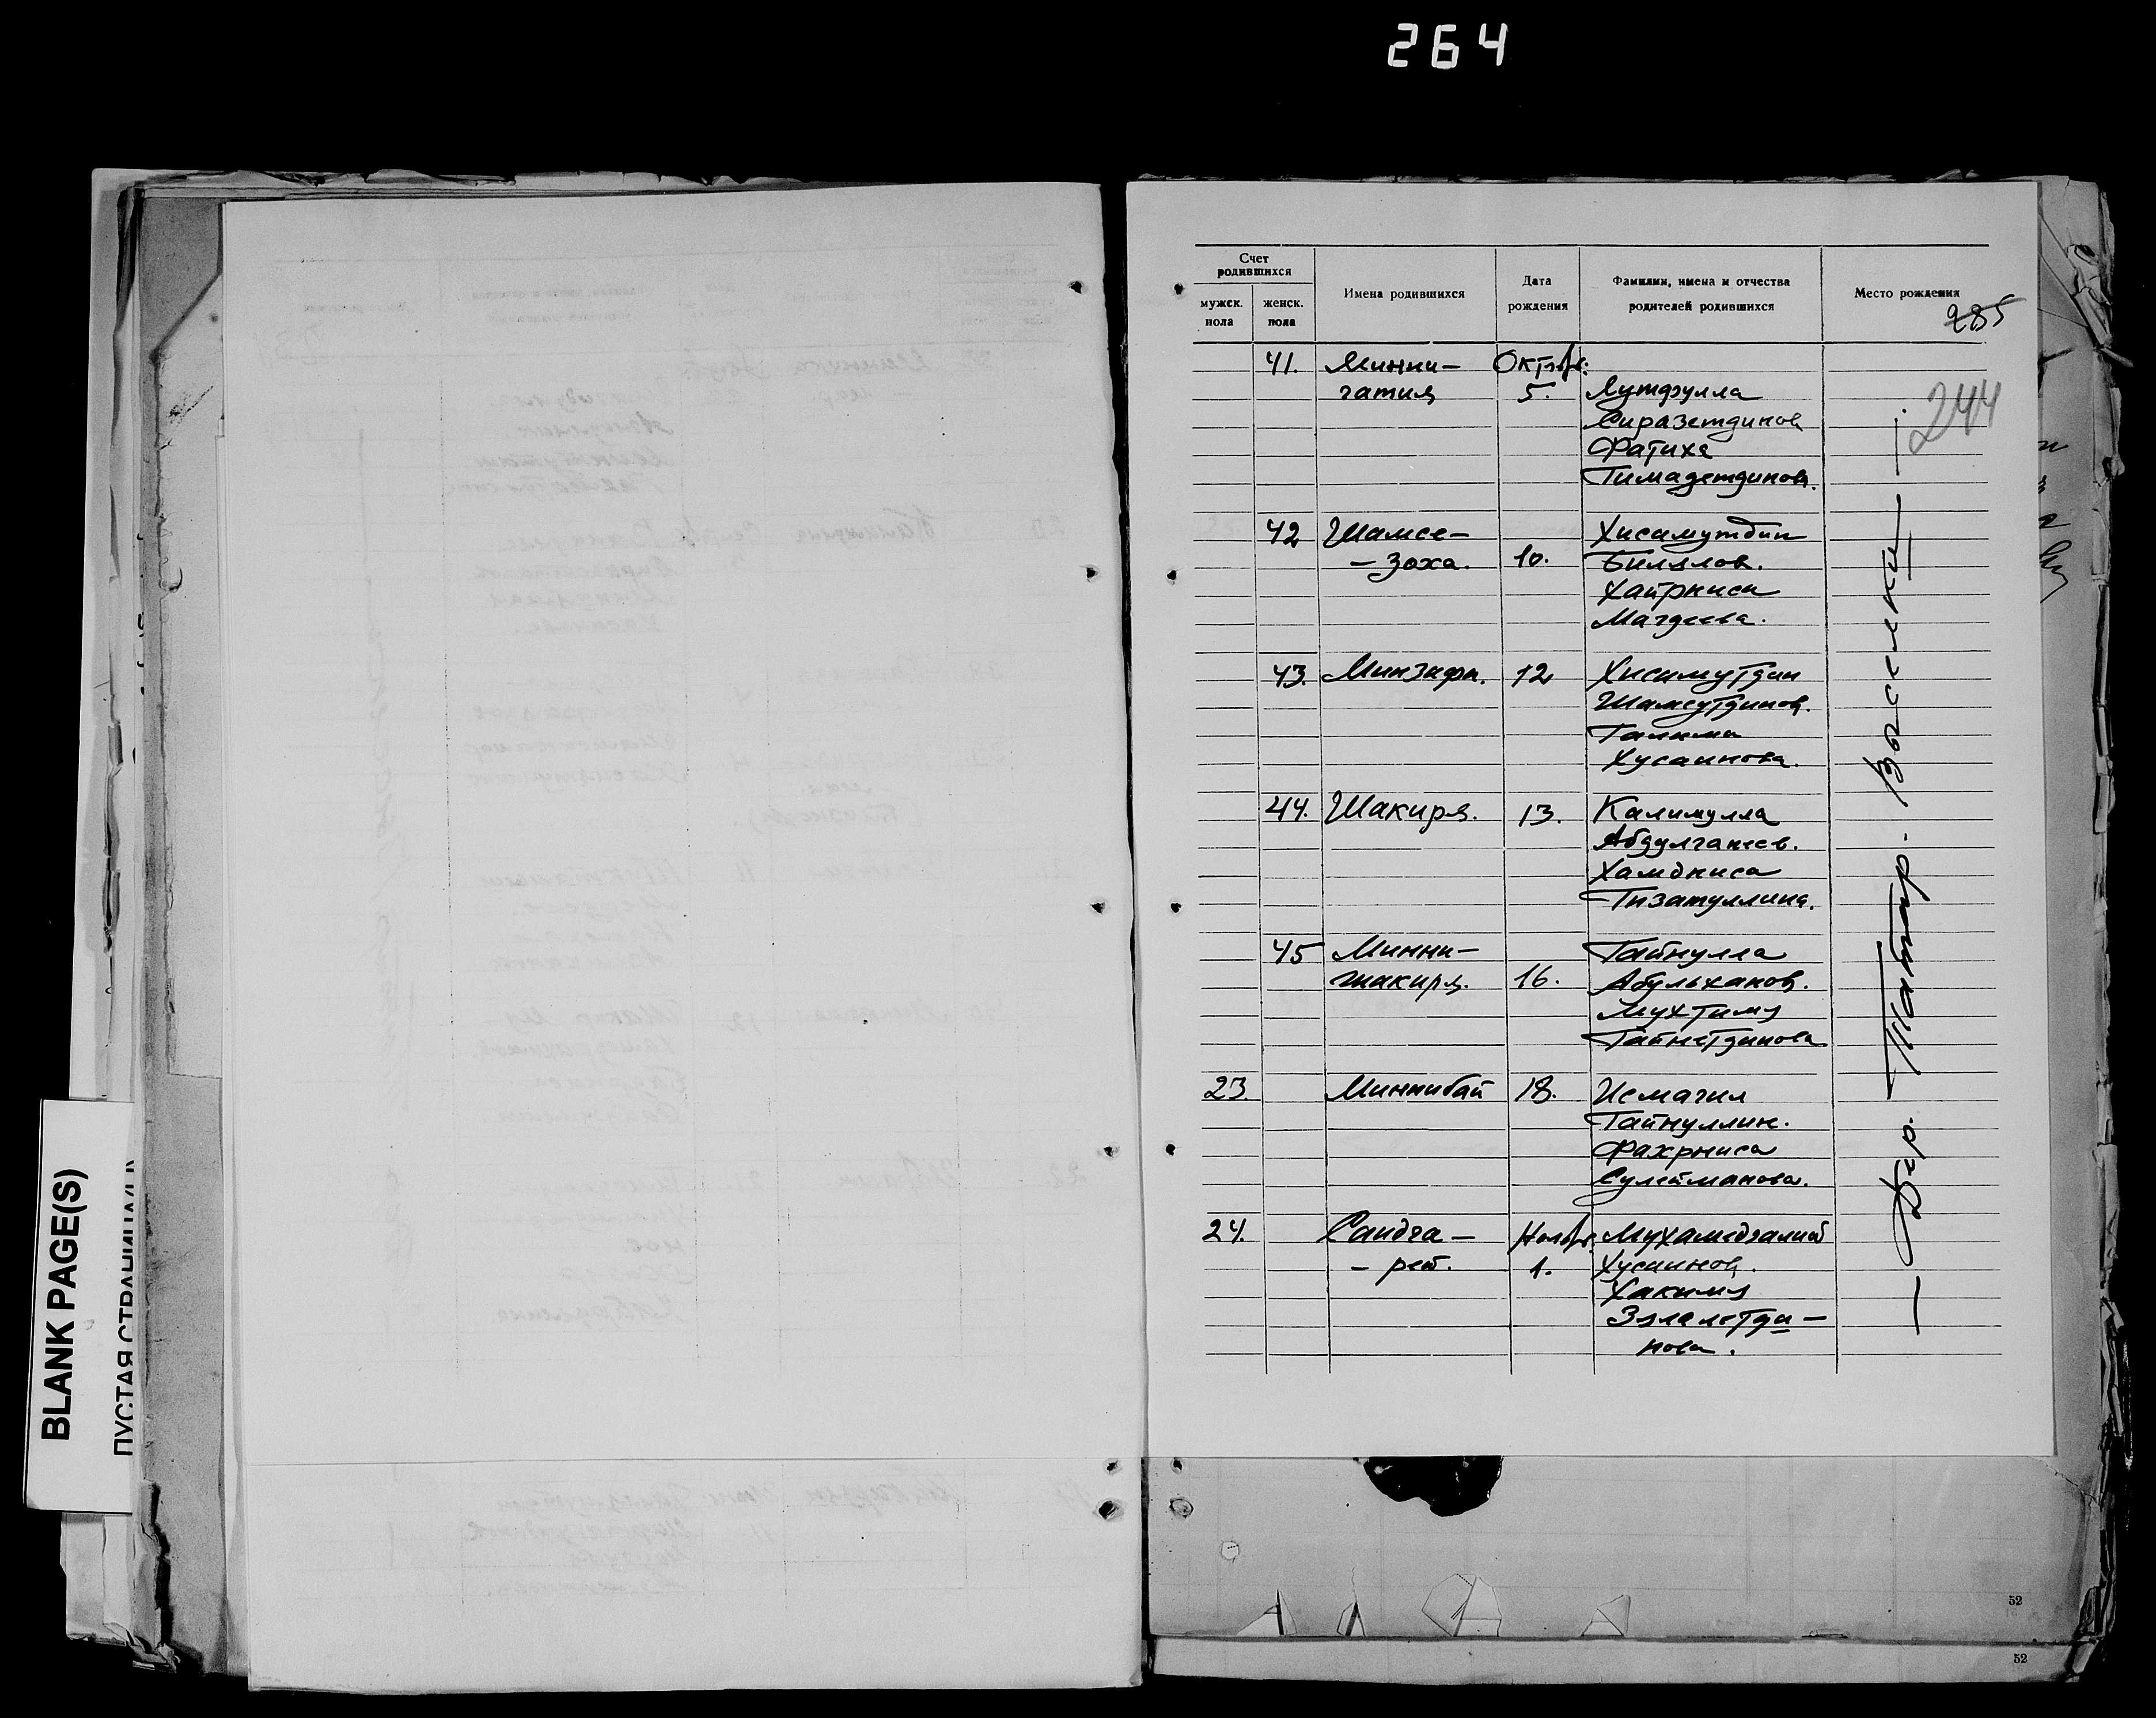 264
BLANK PAGE(S)
ПУСТАЯ СТРАНИЦА(Ы)
Счет родившихся
мужск. пола
женск. пола
Имена родившихся
Дата рождения
Фамилии, имена и отчества родителей родившихся
Место рождения
285
244
41. Минни- Октябр.
гатия 5. Лутфулла
Сиразетдинов
Фатиха
Гимадетдинова.
42 Шамсе- Хисамутдин
- зоха. 10. Билялов.
Хайрниса
Магдеева.
43. Минзифа. 12 Хисамутдин
Шамсутдинов.
Галима
Хусаинова.
44. Шакиря. 13. Калимулла
Абдулганеев.
Хамдниса
Гизатуллина.
45 Минни- Гайнулла
шакиря. 16. Абульханов.
Мухтимя
Гайнетдинова
23. Миннибай 18. Исмагил
Гайнуллин.
Фахрниса
Сулейманова.
24. Саидга- Ноябр. Мухамедгалий
- рей. 1. Хусаинов.
Хакимя
Зялалетди-
нова.
— Дер. Татар. Выселки —
52
52